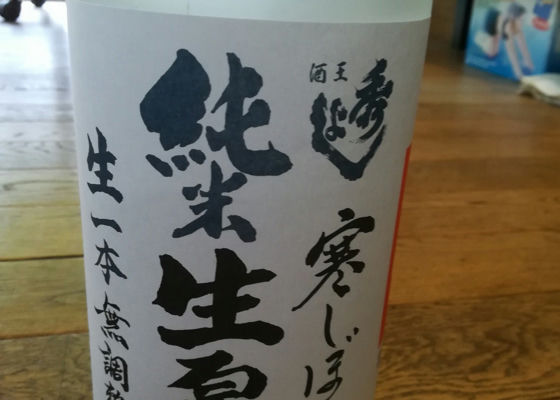 酒王 秀よし
寒しぼ
純米生原
生一本 無調